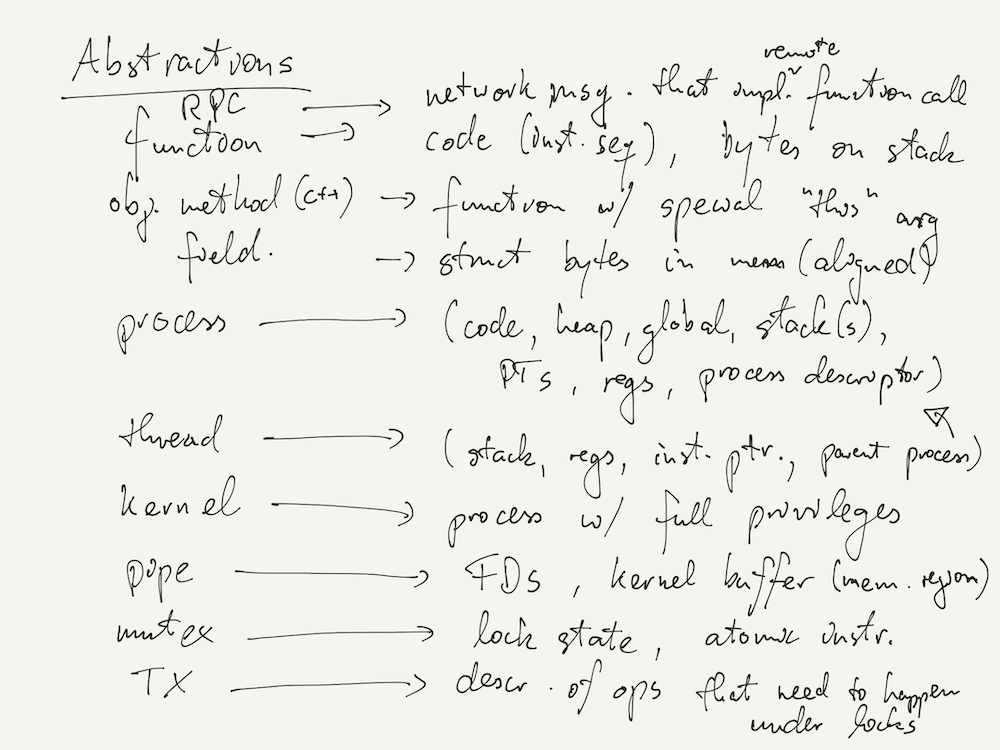 Abstractions
RPC → network msg. that impl. remote function call
function → code (inst. seq), bytes on stack
obj. method (C++) → function w/ special "this" arg
field. → struct bytes in mem (aligned)
process → (code, heap, global, stack(s),
PTs, regs, process descriptor)
thread → (stack, regs, inst. ptr., parent process)
kernel → process w/ full privileges
pipe → FDs, kernel buffer (mem. region)
mutex → lock state, atomic instr.
TX → descr. of ops that need to happen
under locks